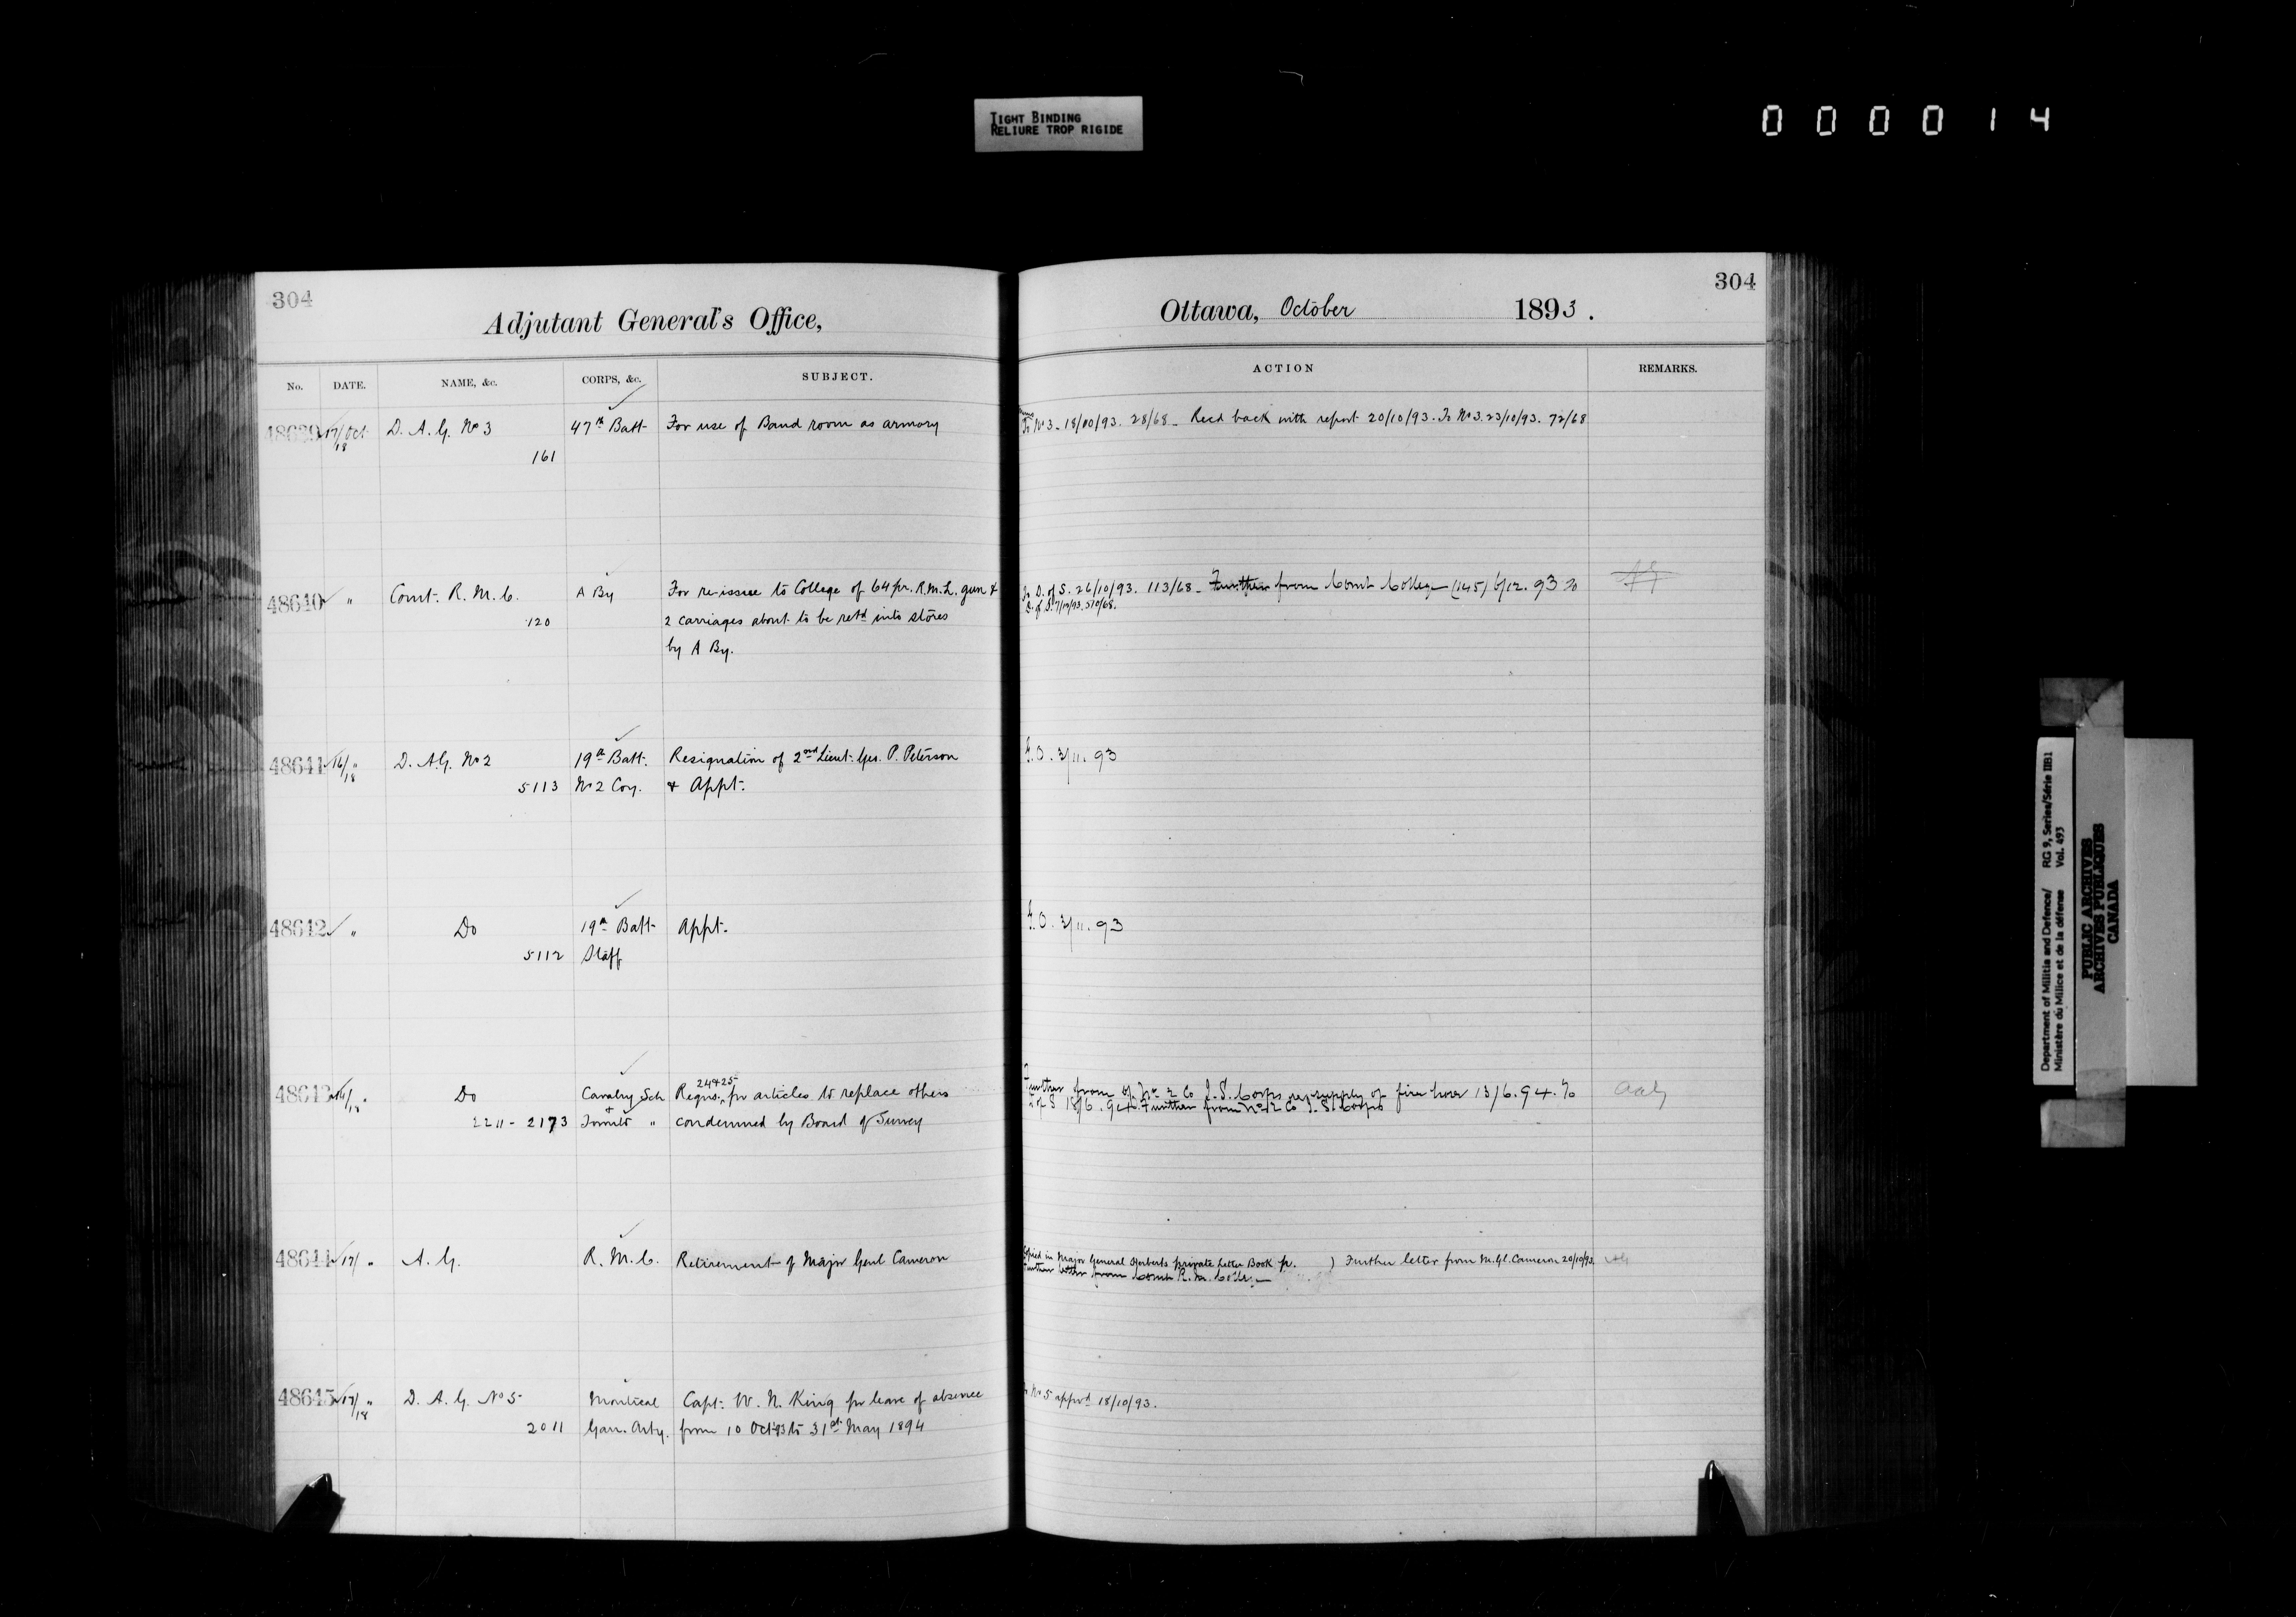 TIGHT BINDING
RELIURE TROP RIGIDE
000014
304
Adjutant General's Office,
No. DATE. NAME, &c. CORPS, &c. SUBJECT.
48639 17/18 Oct D. A. G. No 3 47th Batt For use of Band room as armory
161
48640 " Comt. R. M. C. A By For re-issue to College of 64 pr. R.M.L. gun &
120 2 carriages about to be retd into stores
by A By.
48641 16/18 " D. A.G. No 2 19th Batt. Resignation of 2nd Lieut. Geo. P. Peterson
5113 No 2 Coy. & Appt.
48642 " Do 19th Batt Appt.
5112 Staff
48643 " Do Cavalry Sch Reqns. 24 & 25 for articles to replace others
2211 - 2173 & Toronto " condemned by Board of Survey
48644 17/ " A. G. R. M. C. Retirement of Major Genl Cameron
48645 17/18 " D. A. G. No 5 Montreal Capt. W. N. King for leave of absence
2011 Garr. Arty. from 10 Oct 93 to 31st May 1894
304
Ottawa, October 1893.
ACTION REMARKS.
To No 3. 18/10/93. 28/68. Recd back with report 20/10/93. To No 3. 23/10/93. 72/68
To D. of S. 26/10/93. 113/68. Further from Comt College (145) 6/12. 93 To
D. of S. 7/12/93. 570/68.
G. O. 3/11. 93
G. O. 3/11. 93
Further from No 2 Co I. S. Corps re supply of fire hose 13/6.94. To
D of S 18/6. 94. Further from No 2 Co I. S. Corps
Copied in Major General Herberts private Letter Book p. ) Further letter from M. Gl. Cameron 20/10/93.
Further letter from Comt R. M. Colle.
To No 5 approvd 18/10/93.
Department of Militia and Defence/ RG 9, Series/Série IIB1
Ministère du Milice et de la défense Vol. 493
PUBLIC ARCHIVES
ARCHIVES PUBLIQUES
CANADA